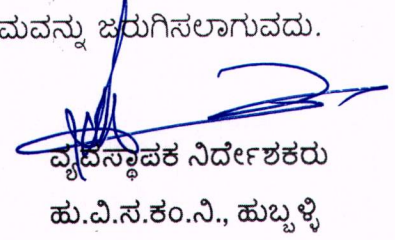 ಮವನ್ನು ಜರುಗಿಸಲಾಗುವದು.
ವ್ಯವಸ್ಥಾಪಕ ನಿರ್ದೇಶಕರು
ಹು.ವಿ.ಸ.ಕಂ.ನಿ., ಹುಬ್ಬಳ್ಳಿ